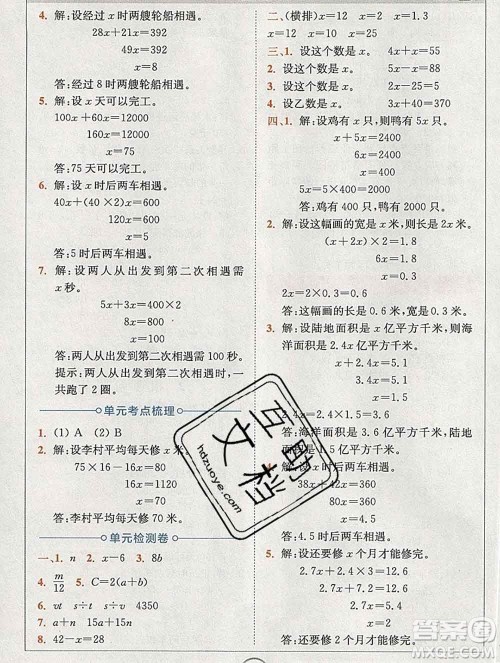 4. 解:设经过 x 时两艘轮船相遇。
28x+21x=392
49x=392
x=8
答:经过 8 时两艘轮船相遇。
5. 解:设 x 天可以完工。
100x+60x=12000
160x=12000
x=75
答:75 天可以完工。
6. 解:设 x 时后两车相遇。
40x+(40×2)x=600
120x=600
x=5
答:5 时后两车相遇。
7. 解:设两人从出发到第二次相遇需
x 秒。
5x+3x=400×2
8x=800
x=100
答:两人从出发到第二次相遇需 100 秒。
提示:两人从出发到第二次相遇,一
共跑了 2 圈。
单元考点梳理
1. (1) A (2) B
2. 解:设李村平均每天修 x 米。
75×16-16x=80
x=70
答:李村平均每天修 70 米。
单元检测卷
一、1. n 2. x-6 3. 8b
4. m/12 5. C=2(a+b)
6. vt s÷t s÷v 4350
7. a+n 15a+15n
8. 42-x=28
二、(横排)x=12 x=2 x=12
x=8 x=12 x=0.4
三、1. 设这个数是 x。 4x+x=55
2. 设这个数是 x。 5x-x=88
3. 设这个数是 x。 2x-25=5
4. 设乙数是 x。 3x+40=370
四、1. 解:设鸡有 x 只,则鸭有 5x 只。
x+5x=2400
6x=2400
x=400
5x=5×400=2000
答:鸡有 400 只,鸭有 2000 只。
2. 解:设这幅画的宽是 x 米,则长是 2x 米。
(x+2x)×2=1.8
6x=1.8
x=0.3
2x=2×0.3=0.6
答:这幅画的长是 0.6 米,宽是 0.3 米。
3. 解:设陆地面积是 x 亿平方千米,则海
洋面积是 2.4x 亿平方千米。
x+2.4x=5.1
x=1.5
2.4x=2.4×1.5=3.6
答:海洋面积是 3.6 亿平方千米,陆地面
积是 1.5 亿平方千米。
38x+42x=360
x=4.5
答:4.5 时后两车相遇。
5. 解:设还要修 x 个月才能修完。
1.2x+3.6=12
x=7
答:还要修 7 个月才能修完。
5. 解:设还要修 x 个月才能修完。
2.7x+4.5=12.6
2.7x=8.1
x=3
答:还要修 3 个月才能修完。
互助文档
hdzuoye.com